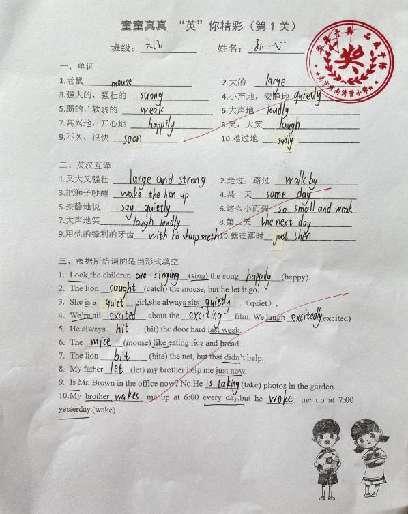 童童真真 “英”你精彩（第1关）
班级： 姓名：
奖
一、单词
1.老鼠 mouse 2.大的 large
3.强大的、强壮的 strong 4.小声地，安静地 quietly
weak 5.大声地 loudly
happily laugh
soon sadly
二、英汉互译
1.又大又强壮 large and strong 2. walk by
wake the lion up 4. 某一天 some day
say quietly so small and weak
7.大声地笑 laugh loudly the next day
with his sharp teeth just then
三、用所给词的适当形式填空
1. Look,the children are singing (sing) the song happily (happy).
2. The lion caught (catch) the mouse, but he let it go.
3. She is a quiet girl,she always sits quietly (quiet).
4. We're all excited about the exciting film. We laugh excitedly (excited)
5. He always hit (hit) the door hard last week.
6. The mice (mouse) like eating rice and bread.
7. The lion bit (bite) the net, but that didn't help.
8. My father let (let) my brother help me just now.
9. Is Mr. Brown in the office now? No.He is taking (take) photos in the garden.
10.My brother wakes me up at 6:00 every day,but he woke me up at 7:00
yesterday.(wake)